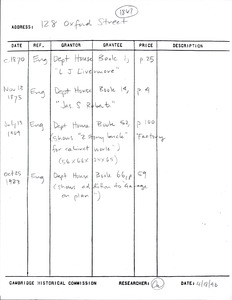 (1841)
ADDRESS: 128 Oxford Street
DATE REF. GRANTOR GRANTEE PRICE DESCRIPTION
c. 1870 Eng Dept House Book 1, p. 25
"L J Livermore"
Nov 13 Eng Dept House Book 14, p. 4
1875 "Jas S Roberts"
July 13 Eng Dept House Book 52, p. 100
1909 (shows "2 story brick Factory
for cabinet work")
Oct 25 Eng Dept House Book 66, p 59
1928 (shows addition to garage
on plan")
CAMBRIDGE HISTORICAL COMMISSION RESEARCHER: DATE: 4/9/96